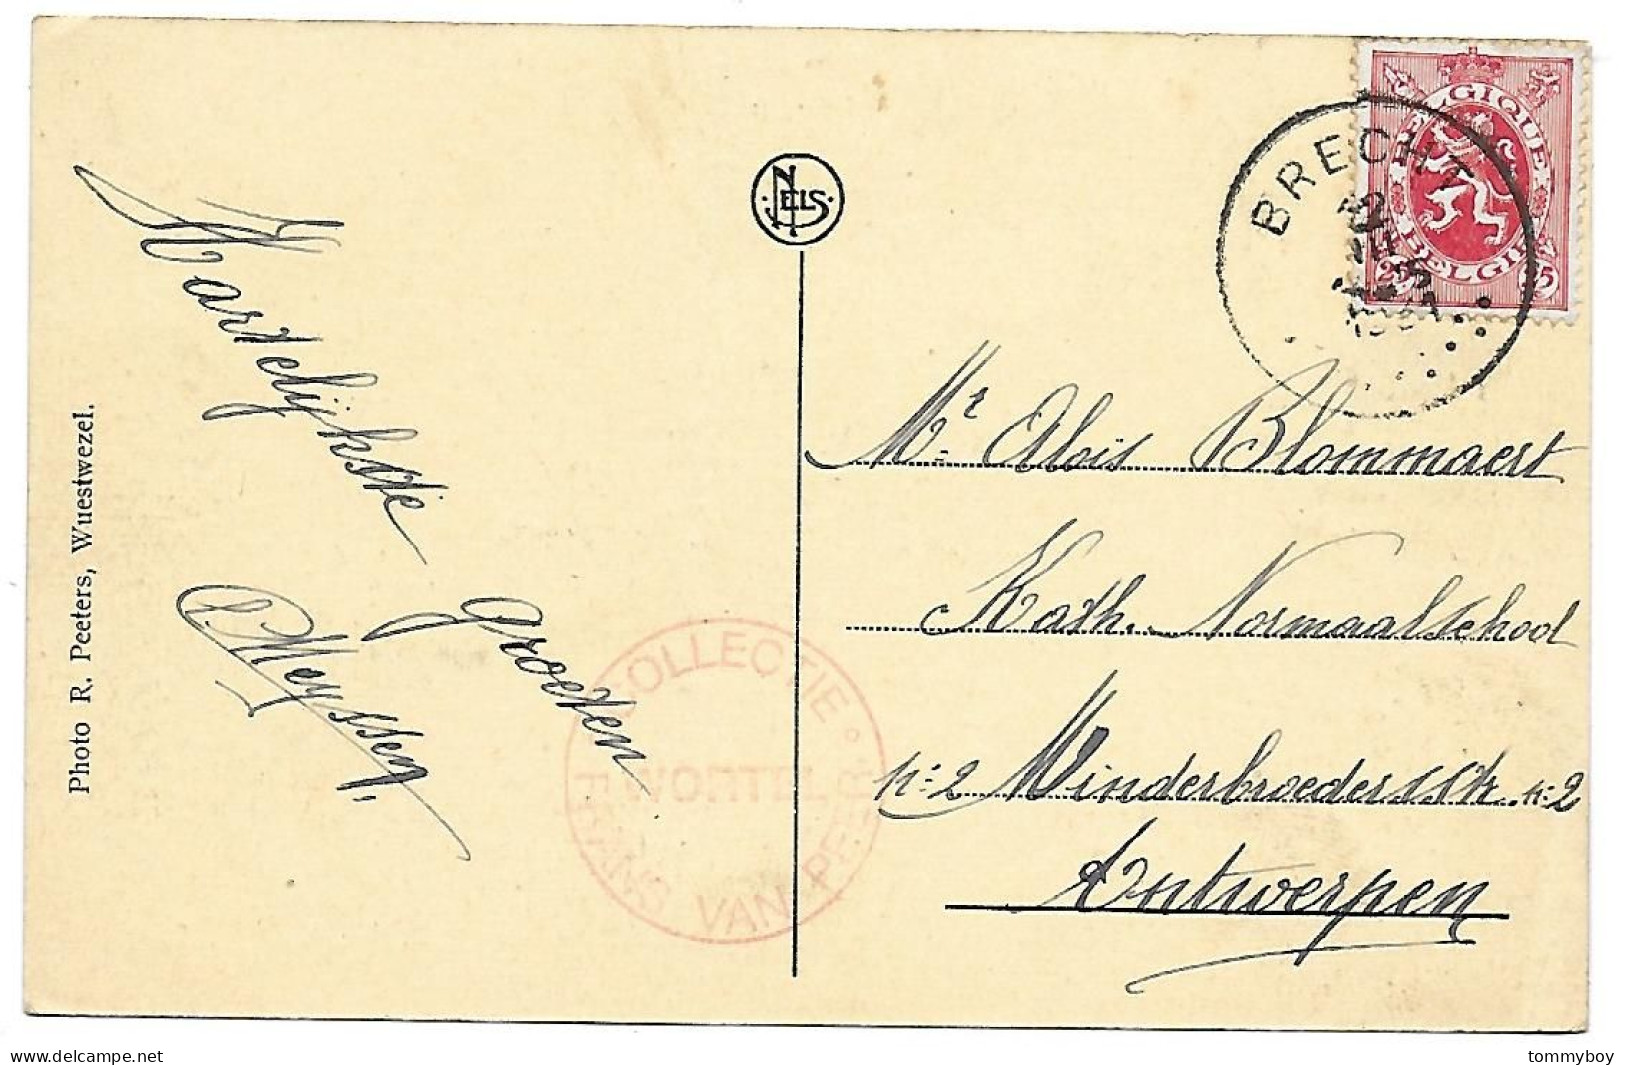 Hartelijkste
groeten
Meyssen,
Photo R. Peeters, Wuestwezel.
NELS
COLLECTIE
WORTEL
FRANS VAN PE
BRECHT
12
1931
BELGIQUE
BELGIE
25 25
Mr. Aloïs Blommaert
Kath. Normaalschool
n:2 Minderbroedersstr. n:2
Antwerpen
delcampe.net
tommyboy